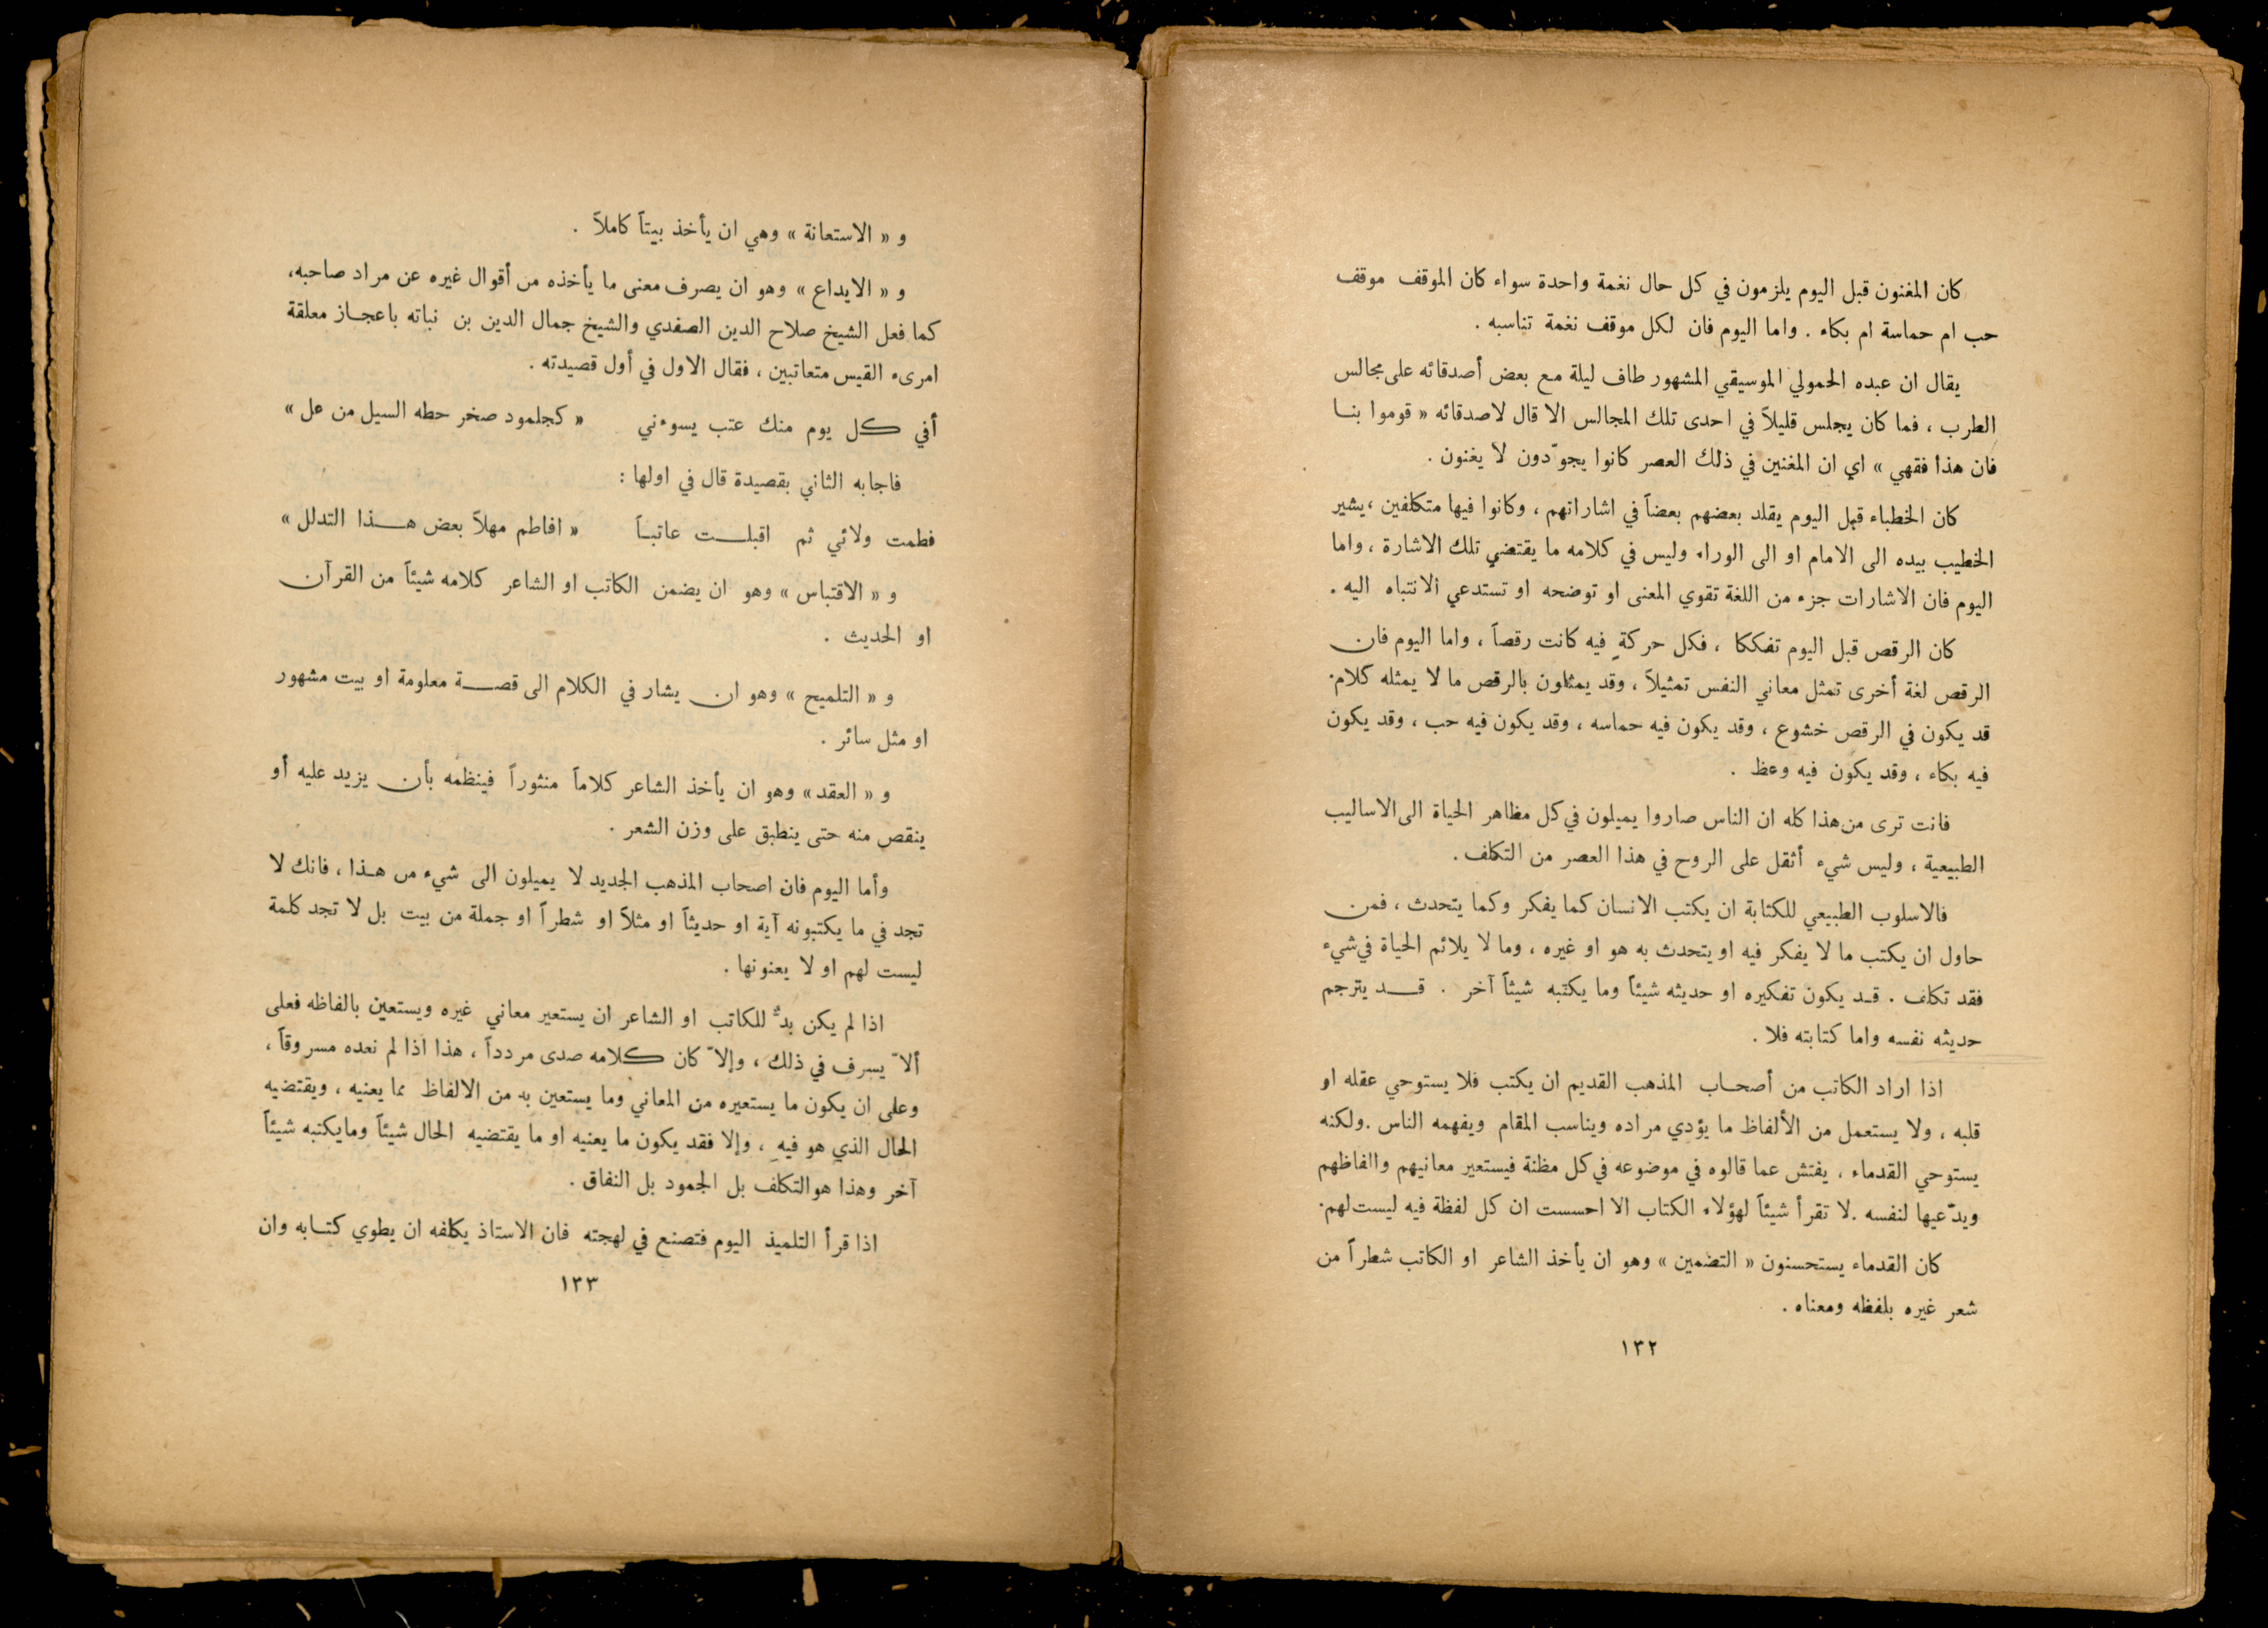 كان المغنون قبل اليوم يلزمون في كل حال نغمة واحدة سواء كان الموقف موقف
حب ام حماسة ام بكاء . واما اليوم فان لكل موقف نغمة تناسبه .
يقال ان عبده الحمولي الموسيقي المشهور طاف ليلة مع بعض أصدقائه على مجالس
الطرب ، فما كان يجلس قليلاً في احدى تلك المجالس الا قال لاصدقائه « قوموا بنا
فان هذا فقهي » اي ان المغنين في ذلك العصر كانوا يجوّدون لا يغنون .
كان الخطباء قبل اليوم يقلد بعضهم بعضاً في اشاراتهم ، وكانوا فيها متكلفين ، يشير
الخطيب بيده الى الامام او الى الوراء وليس في كلامه ما يقتضي تلك الاشارة ، واما
اليوم فان الاشارات جزء من اللغة تقوي المعنى او توضحه او تستدعي الانتباه اليه .
كان الرقص قبل اليوم تفككا ، فكل حركةٍ فيه كانت رقصاً ، واما اليوم فان
الرقص لغة أخرى تمثل معاني النفس تمثيلاً ، وقد يمثلون بالرقص ما لا يمثله كلام .
قد يكون في الرقص خشوع ، وقد يكون فيه حماسه ، وقد يكون فيه حب ، وقد يكون
فيه بكاء ، وقد يكون فيه وعظ .
فانت ترى من هذا كله ان الناس صاروا يميلون في كل مظاهر الحياة الى الاساليب
الطبيعية ، وليس شيء أثقل على الروح في هذا العصر من التكلف .
فالاسلوب الطبيعي للكتابة ان يكتب الانسان كما يفكر وكما يتحدث ، فمن
حاول ان يكتب ما لا يفكر فيه او يتحدث به هو او غيره ، وما لا يلائم الحياة في شيء
فقد تكلف . قد يكون تفكيره او حديثه شيئاً وما يكتبه شيئاً آخر . قد يترجم
حديثه نفسه واما كتابته فلا .
اذا اراد الكاتب من أصحاب المذهب القديم ان يكتب فلا يستوحي عقله او
قلبه ، ولا يستعمل من الألفاظ ما يؤدي مراده ويناسب المقام ويفهمه الناس . ولكنه
يستوحي القدماء ، يفتش عما قالوه في موضوعه في كل مظنة فيستعير معانيهم والفاظهم
ويدّعيها لنفسه . لا تقرأ شيئاً لهؤلاء الكتاب الا احسست ان كل لفظة فيه ليست لهم .
كان القدماء يستحسنون « التضمين » وهو ان يأخذ الشاعر او الكاتب شطراً من
شعر غيره بلفظه ومعناه .
١٣٢
و « الاستعانة » وهي ان يأخذ بيتاً كاملاً .
و « الايداع » وهو ان يصرف معنى ما يأخذه من أقوال غيره عن مراد صاحبه ،
كما فعل الشيخ صلاح الدين الصفدي والشيخ جمال الدين بن نباته باعجاز معلقة
امرىء القيس متعاتبين ، فقال الاول في أول قصيدته .
أفي كل يوم منك عتب يسوءني « كجلمود صخر حطه السيل من عل »
فاجابه الثاني بقصيدة قال في اولها :
فطمت ولائي ثم اقبلت عاتباً « افاطم مهلاً بعض هذا التدلل »
و « الاقتباس » وهو ان يضمن الكاتب او الشاعر كلامه شيئاً من القرآن
او الحديث .
و « التلميح » وهو ان يشار في الكلام الى قصة معلومة او بيت مشهور
او مثل سائر .
و « العقد » وهو ان يأخذ الشاعر كلاماً منثوراً فينظمه بأن يزيد عليه أو
ينقص منه حتى ينطبق على وزن الشعر .
وأما اليوم فان اصحاب المذهب الجديد لا يميلون الى شيء من هذا ، فانك لا
تجد في ما يكتبونه آية او حديثاً او مثلاً او شطراً او جملة من بيت بل لا تجد كلمة
ليست لهم او لا يعنونها .
اذا لم يكن بدٌّ للكاتب او الشاعر ان يستعير معاني غيره ويستعين بالفاظه فعلى
ألاّ يسرف في ذلك ، وإلاّ كان كلامه صدى مردداً ، هذا اذا لم نعده مسروقاً ،
وعلى ان يكون ما يستعيره من المعاني وما يستعين به من الالفاظ مما يعنيه ، ويقتضيه
الحال الذي هو فيه ، وإلا فقد يكون ما يعنيه او ما يقتضيه الحال شيئاً وما يكتبه شيئاً
آخر وهذا هو التكلف بل الجمود بل النفاق .
اذا قرأ التلميذ اليوم فتصنع في لهجته فان الاستاذ يكلفه ان يطوي كتابه وان
١٣٣